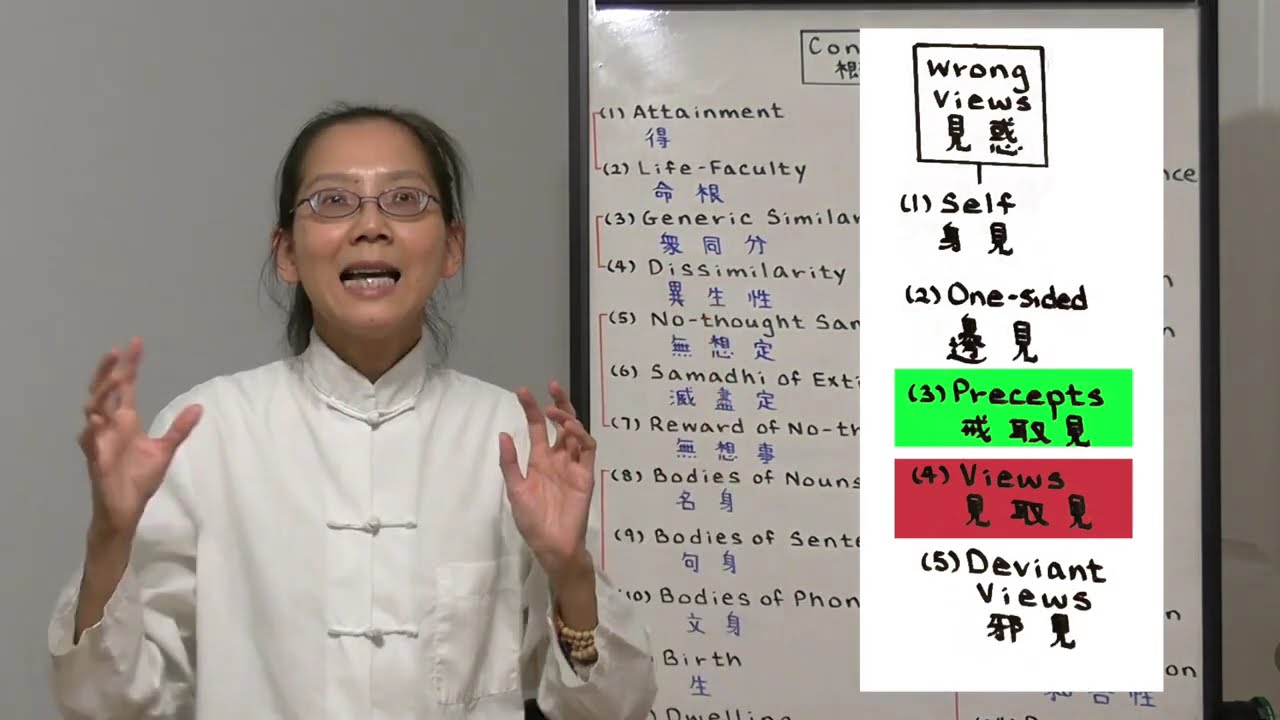 Con
(1) Attainment
得
(2) Life-Faculty
命根
(3) Generic Similar
衆同分
(4) Dissimilarity
異生性
(5) No-thought Sam
無想定
(6) Samadhi of Exti
滅盡定
(7) Reward of No-th
無想事
(8) Bodies of Nouns
名身
(9) Bodies of Sente
句身
(10) Bodies of Phon
文身
Birth
生
Dwelling
nce
n
on
和合性
Wrong
Views
見惑
(1) Self
身見
(2) One-sided
邊見
(3) Precepts
戒取見
(4) Views
見取見
(5) Deviant
Views
邪見